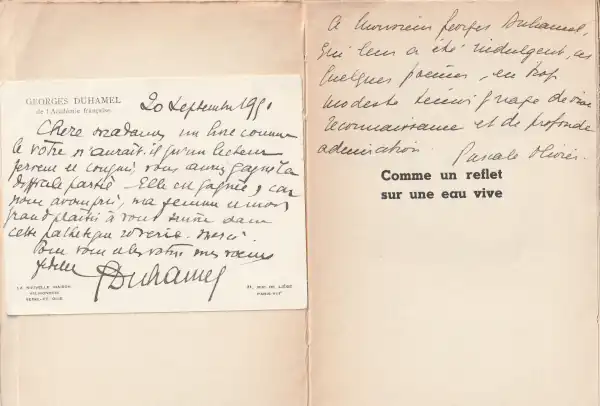 GEORGES DUHAMEL
de l'Académie française
20 septembre 195
Chère madame, un livre comme
le vôtre n'aurait-il qu'un lecteur
fervent et conquis, vous auriez gagné la
difficile partie. Elle est gagnée, car
nous avons pris, ma femme et moi,
grand plaisir à vous suivre dans
cette pathétique rêverie. Merci.
Pour vous et les vôtres mes vœux
fidèles
GDuhamel
LA NOUVELLE MAISON
VALMONDOIS
SEINE-ET-OISE
31, RUE DE LIÉGE
PARIS-VIIIe
A Monsieur Georges Duhamel,
Qui leur a été indulgent, ces
Quelques poèmes, en trop
modeste témoignage de vive
reconnaissance et de profonde
admiration.
Pascale Olivier.
Comme un reflet
sur une eau vive